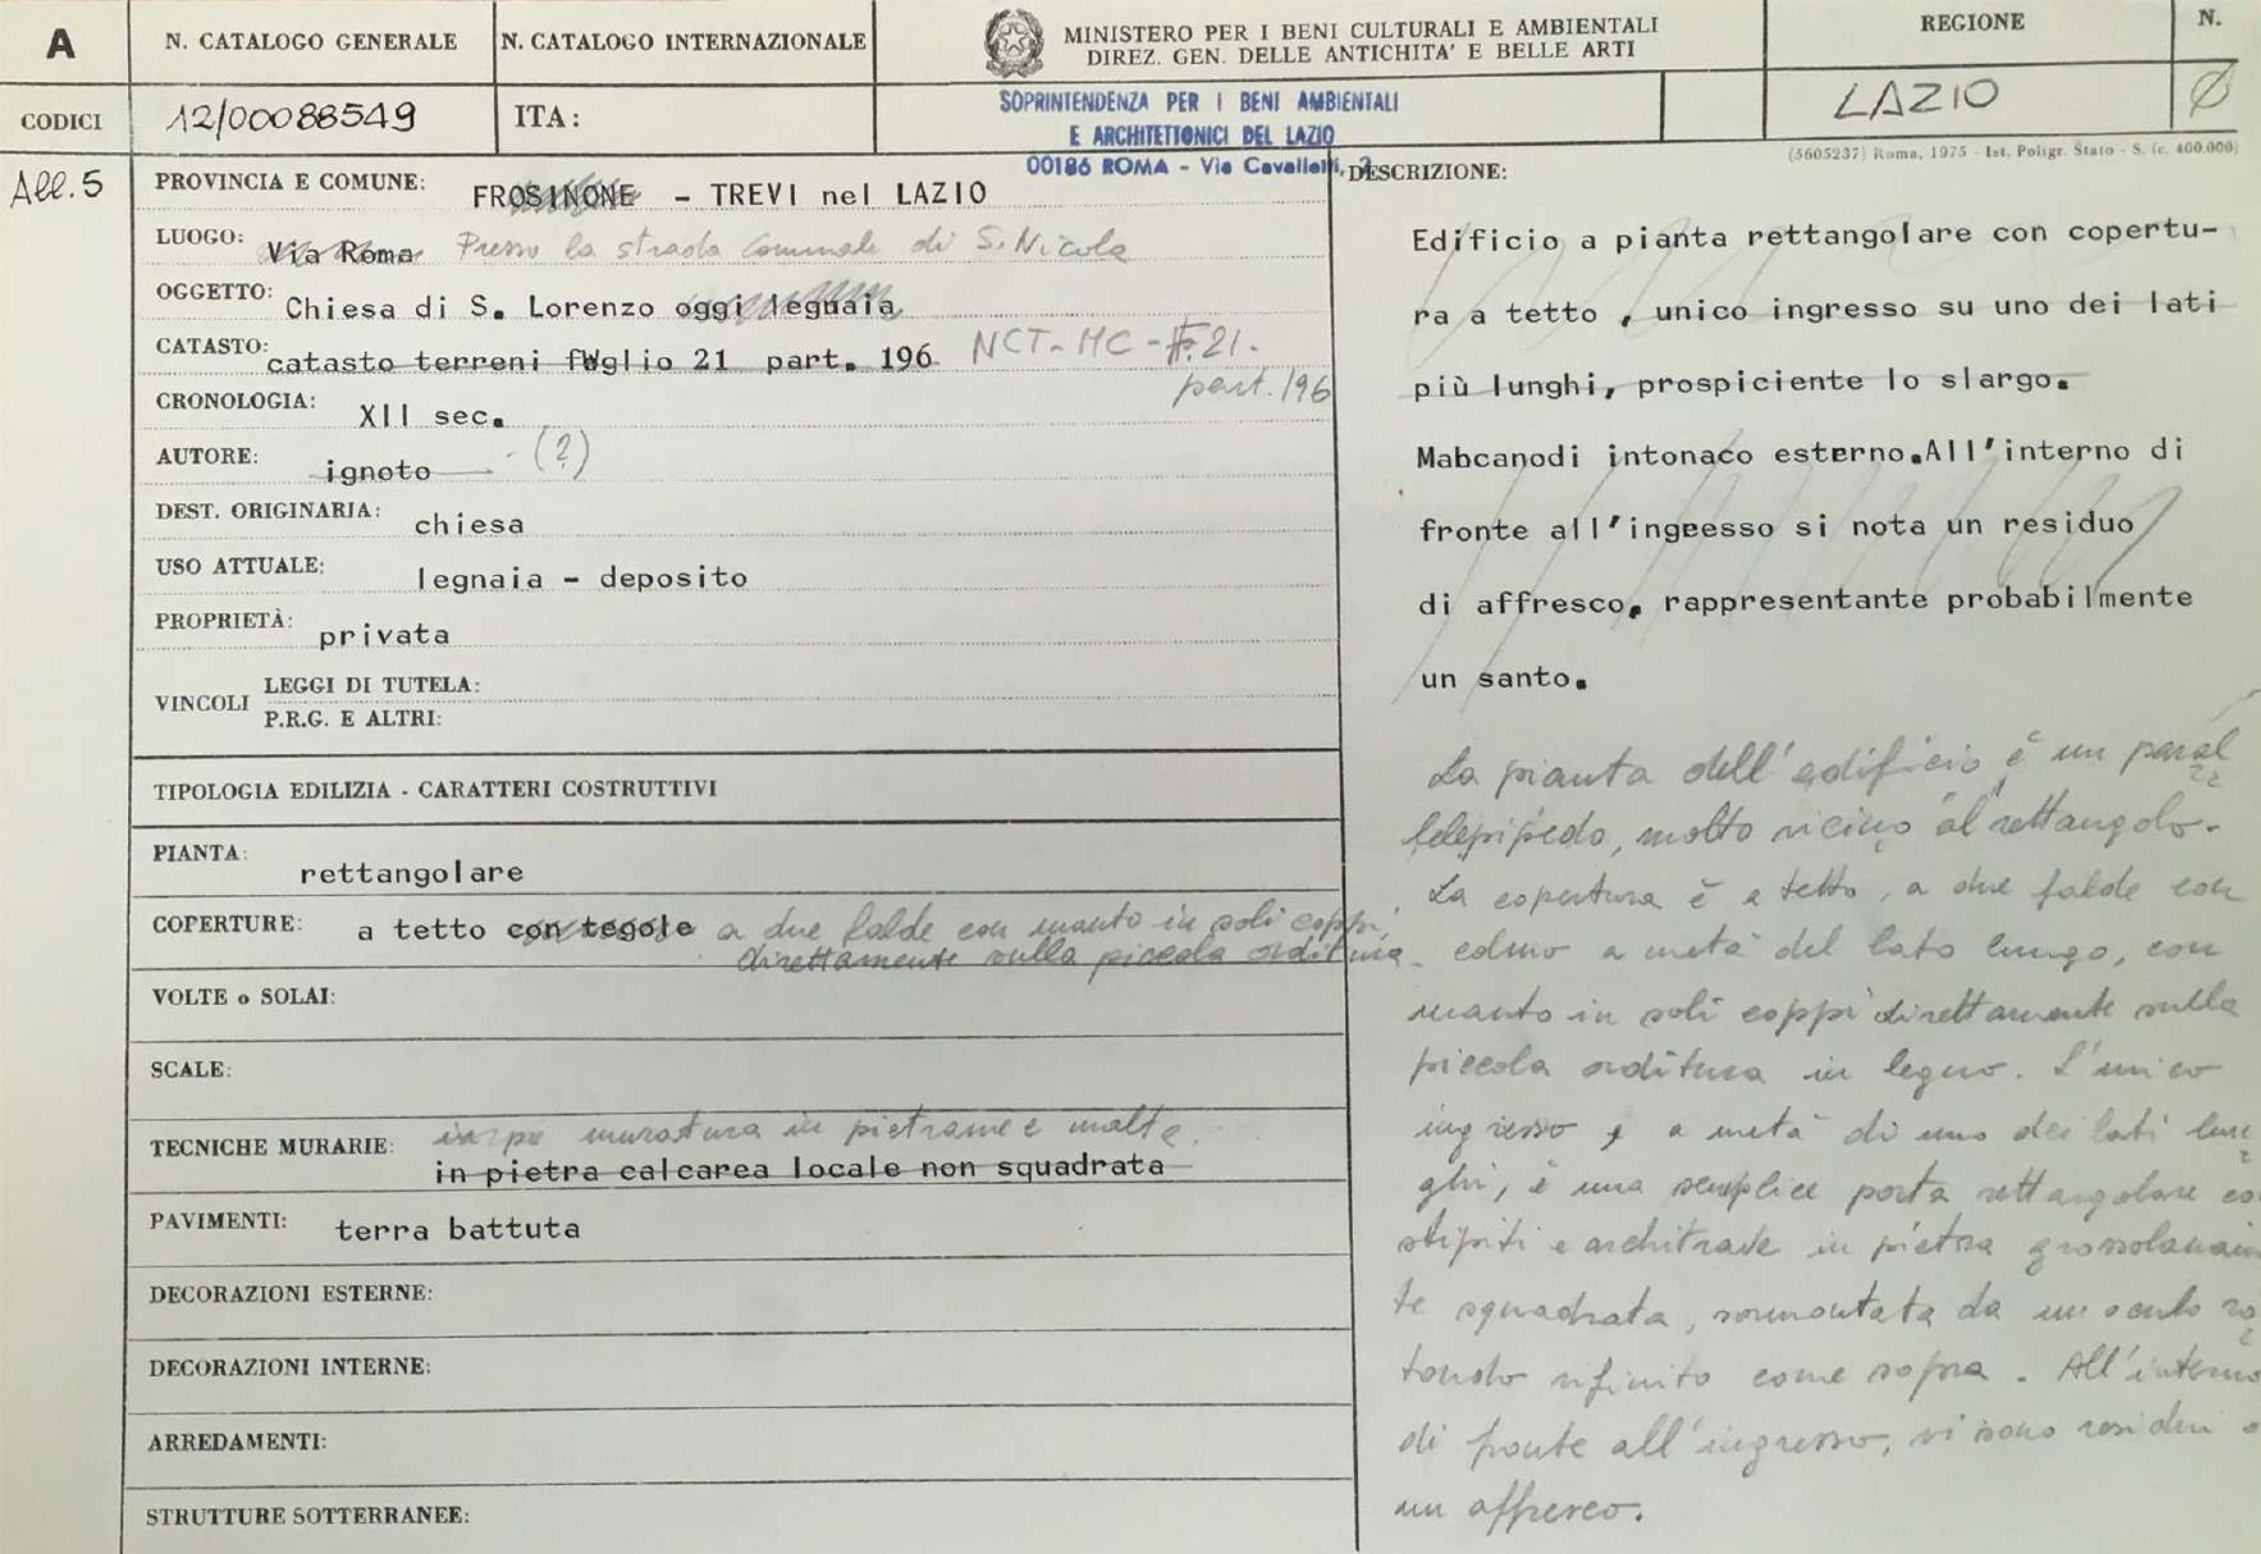 A
N. CATALOGO GENERALE
N. CATALOGO INTERNAZIONALE
MINISTERO PER I BENI CULTURALI E AMBIENTALI
DIREZ. GEN. DELLE ANTICHITA' E BELLE ARTI
REGIONE
N.
CODICI
12/00088549
ITA:
SOPRINTENDENZA PER I BENI AMBIENTALI
E ARCHITETTONICI DEL LAZIO
00186 ROMA - Via Cavalletti, 2
LAZIO
Ø
(5605237) Roma, 1975 - Ist. Poligr. Stato - S. (c. 400.000)
All. 5
PROVINCIA E COMUNE: FROSINONE - TREVI nel LAZIO
LUOGO: Via Roma Presso la strada Comunale di S. Nicola
OGGETTO: Chiesa di S. Lorenzo oggi legnaia
CATASTO: catasto terreni foglio 21 part. 196 NCT- MC - F. 21.
part. 196
CRONOLOGIA: XII sec.
AUTORE: ignoto (?)
DEST. ORIGINARIA: chiesa
USO ATTUALE: legnaia - deposito
PROPRIETÀ: privata
VINCOLI
LEGGI DI TUTELA:
P.R.G. E ALTRI:
TIPOLOGIA EDILIZIA - CARATTERI COSTRUTTIVI
PIANTA: rettangolare
COPERTURE: a tetto con tegole a due falde con manto in soli coppi,
direttamente sulla piccola orditura
VOLTE o SOLAI:
SCALE:
TECNICHE MURARIE: muratura in pietrame e malta.
in pietra calcarea locale non squadrata
PAVIMENTI: terra battuta
DECORAZIONI ESTERNE:
DECORAZIONI INTERNE:
ARREDAMENTI:
STRUTTURE SOTTERRANEE:
DESCRIZIONE:
Edificio a pianta rettangolare con copertu-
ra a tetto , unico ingresso su uno dei lati
più lunghi, prospiciente lo slargo.
Mabcanodi intonaco esterno.All'interno di
fronte all'ingeesso si nota un residuo
di affresco, rappresentante probabilmente
un santo.
La pianta dell'edificio è un paral
lelepipedo, molto vicino al rettangolo.
La copertura è a tetto, a due falde con
colmo a metà del lato lungo, con
manto in soli coppi direttamente sulla
piccola orditura in legno. L'unico
ingresso, a metà di uno dei lati lun
ghi, è una semplice porta rettangolare co
stipiti e architrave in pietra grossolanam
te squadrata, sormontata da un oculo ro
tondo rifinito come sopra. All'interno
di fronte all'ingresso, vi sono residui
un affresco.